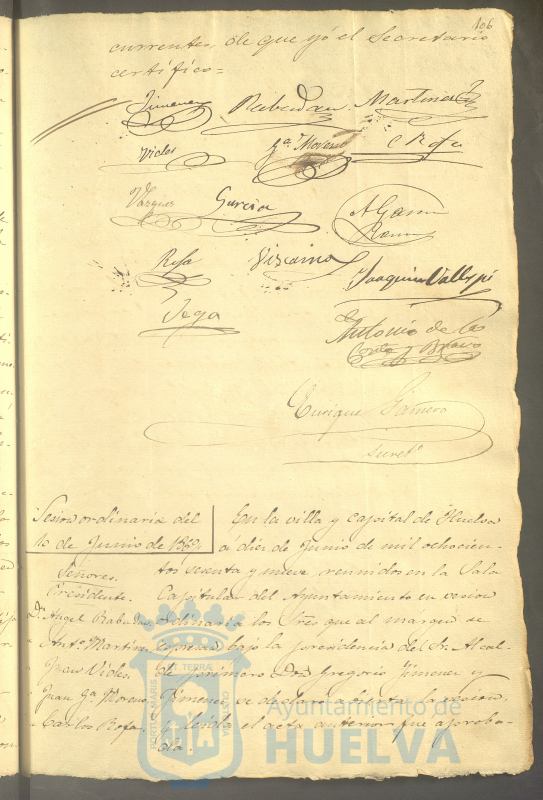 106
currentes, de que yó el Secretario
certifico =
Jimenez Rabadan Martinez
Vides Ga. Moreno C Rofa
Vazquez Garcia A Garcia
Rosa Viscaino Joaquin Vallejo
Vega
Antonio de la
Corte y Bravo
Enrique Gamero
Secreto.
Sesion ordinaria del
10 de Junio de 1869.
Señores.
Presidente.
Dn. Angel Rabadan
" Anto. Martinez
" Juan Vides
" Juan Ga. Moreno
" Carlos Rofa
En la villa y capital de Huelva
á diez de Junio de mil ochocien-
tos sesenta y nueve, reunidos en la Sala
Capitular del Ayuntamiento en sesion
ordinaria los Sres que al margen se
expresan bajo la presidencia del Sr. Alcal-
de primero Don Gregorio Jimenez y
Jimenez se declaró abierta la sesion
y leida el acta anterior fue aproba-
da.
PORTUS MARIS ET TERRÆ CUSTODIA
Ayuntamiento de
HUELVA